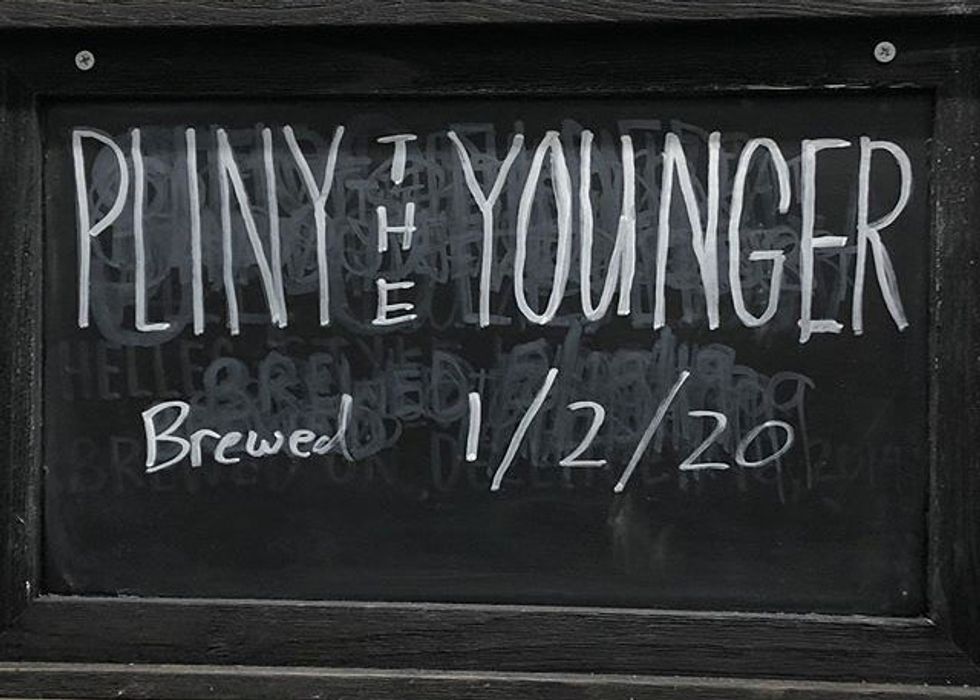 PLINY THE YOUNGER
Brewed 1/2/20